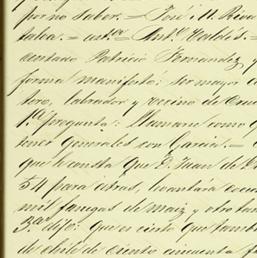 por no saber. = José i M. Riva
taloa. = ant.ᵉ = Ant.º Valdés.
sentado Patricio Fernandez y
forma manifestó: ser mayor d
tero, labrador y vecino de
1.ª pregunta: Numano como q
tener Generales con Garcia. =
que le consta que D. Juan de D
54 para cabras, levantará cocu
mil fanegas de maiz y otro tan
3.ª dijo: que es cierto que tamb
de chile de ciento cincuenta f